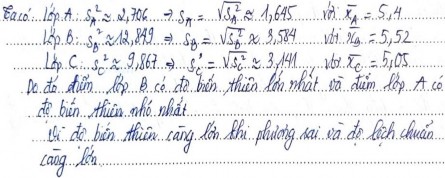 Ta có: Lớp A: s²_A ≈ 2,706 ⇒ s_A = √s²_A ≈ 1,645 với x̄_A = 5,4
Lớp B: s²_B ≈ 12,849 ⇒ s_B = √s²_B ≈ 3,584 với x̄_B = 5,52
Lớp C: s²_C ≈ 9,867 ⇒ s_C = √s²_C ≈ 3,141 với x̄_C = 5,05
Do đó điểm lớp B có độ biến thiên lớn nhất và điểm lớp A có
độ biến thiên nhỏ nhất
Vì độ biến thiên càng lớn khi phương sai và độ lệch chuẩn
càng lớn